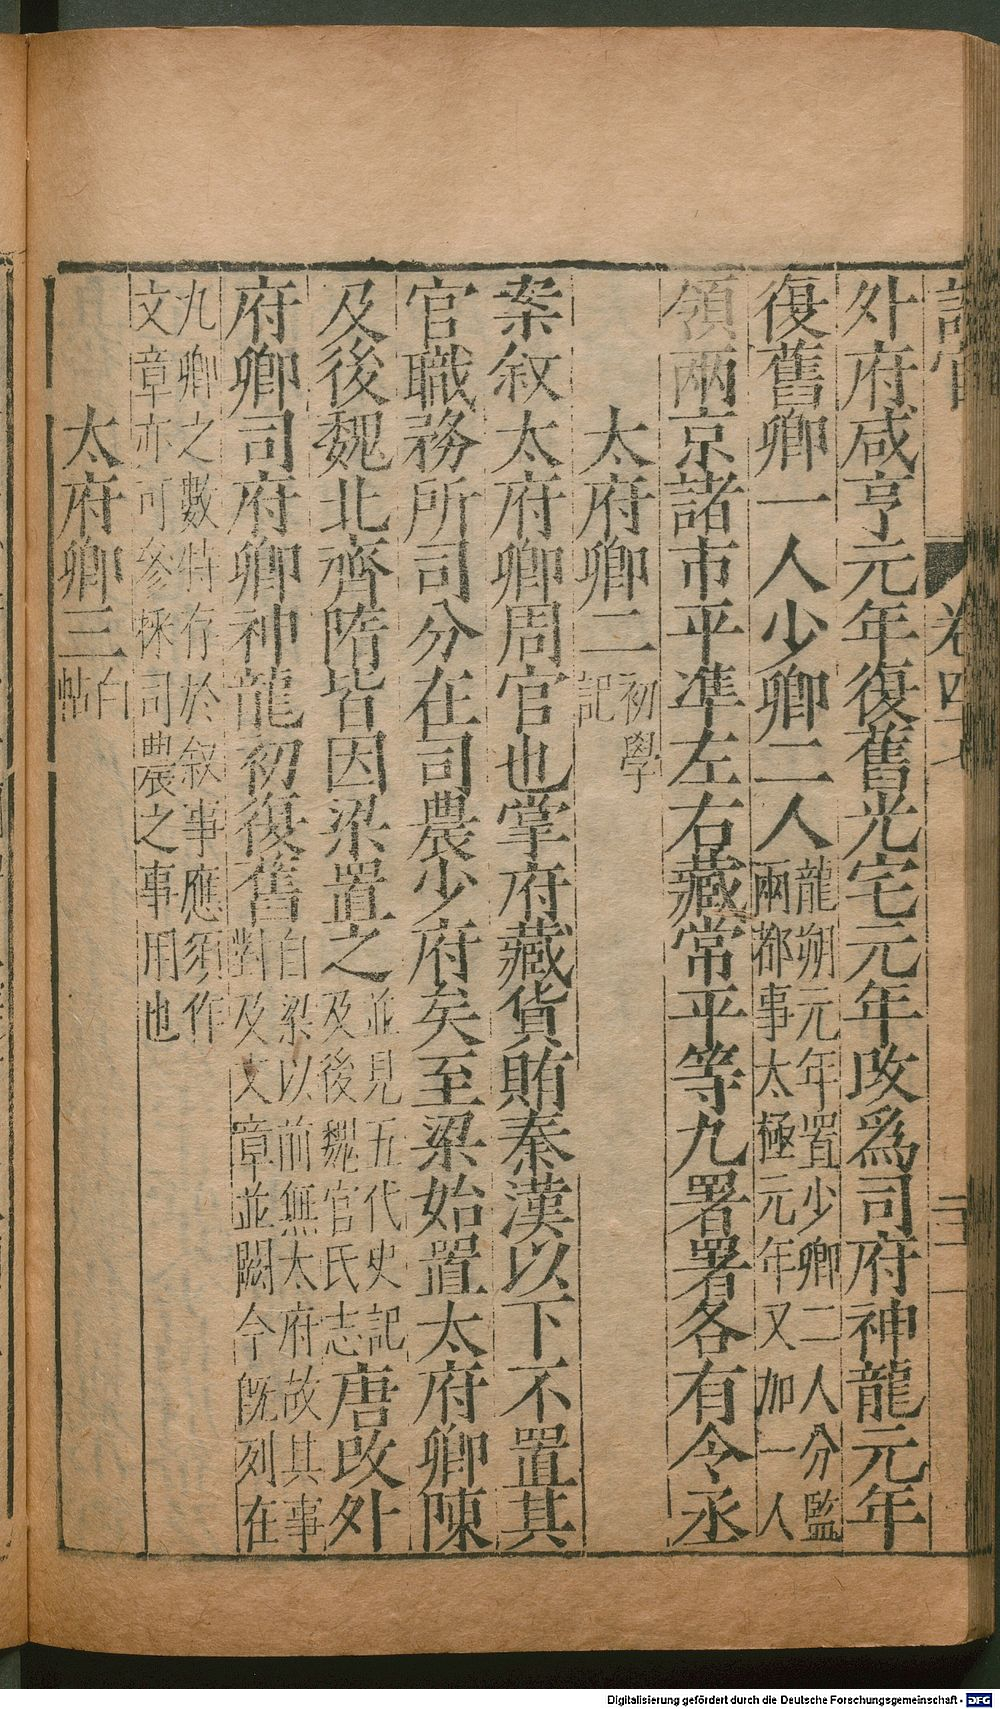 卷四
外府咸亨元年復舊光宅元年改爲司府神龍元年
復舊卿一人少卿二人龍朔元年置少卿二人分監
兩都事太極元年又加一人
領兩京諸市平準左右藏常平等九署署各有令丞
太府卿二初學
記
案叙太府卿周官也掌府藏貨賄秦漢以下不置其
官職務所司分在司農少府矣至梁始置太府卿陳
及後魏北齊隋皆因梁置之並見五代史記
及後魏官氏志唐改外
府卿司府卿神龍初復舊自梁以前無太府故其事
對及文章並闕今旣列在
九卿之數特存於叙事應須作
文章亦可參採司農之事用也
太府卿三白
帖
Digitalisierung gefördert durch die Deutsche Forschungsgemeinschaft - DFG